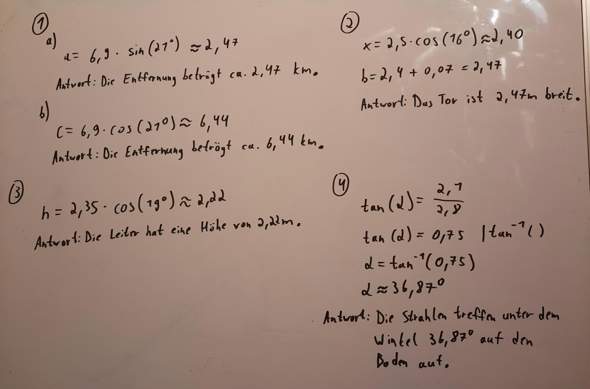 1
a)
a = 6,9 · sin(21°) ≈ 2,47
Antwort: Die Entfernung beträgt ca. 2,47 km.
b)
c = 6,9 · cos(21°) ≈ 6,44
Antwort: Die Entfernung beträgt ca. 6,44 km.
2
x = 2,5 · cos(16°) ≈ 2,40
b = 2,4 + 0,07 = 2,47
Antwort: Das Tor ist 2,47m breit.
3
h = 2,35 · cos(19°) ≈ 2,22
Antwort: Die Leiter hat eine Höhe von 2,22m.
4
tan(α) = 2,1/2,8
tan(α) = 0,75 | tan⁻¹()
α = tan⁻¹(0,75)
α ≈ 36,87°
Antwort: Die Strahlen treffen unter dem
Winkel 36,87° auf den
Boden auf.